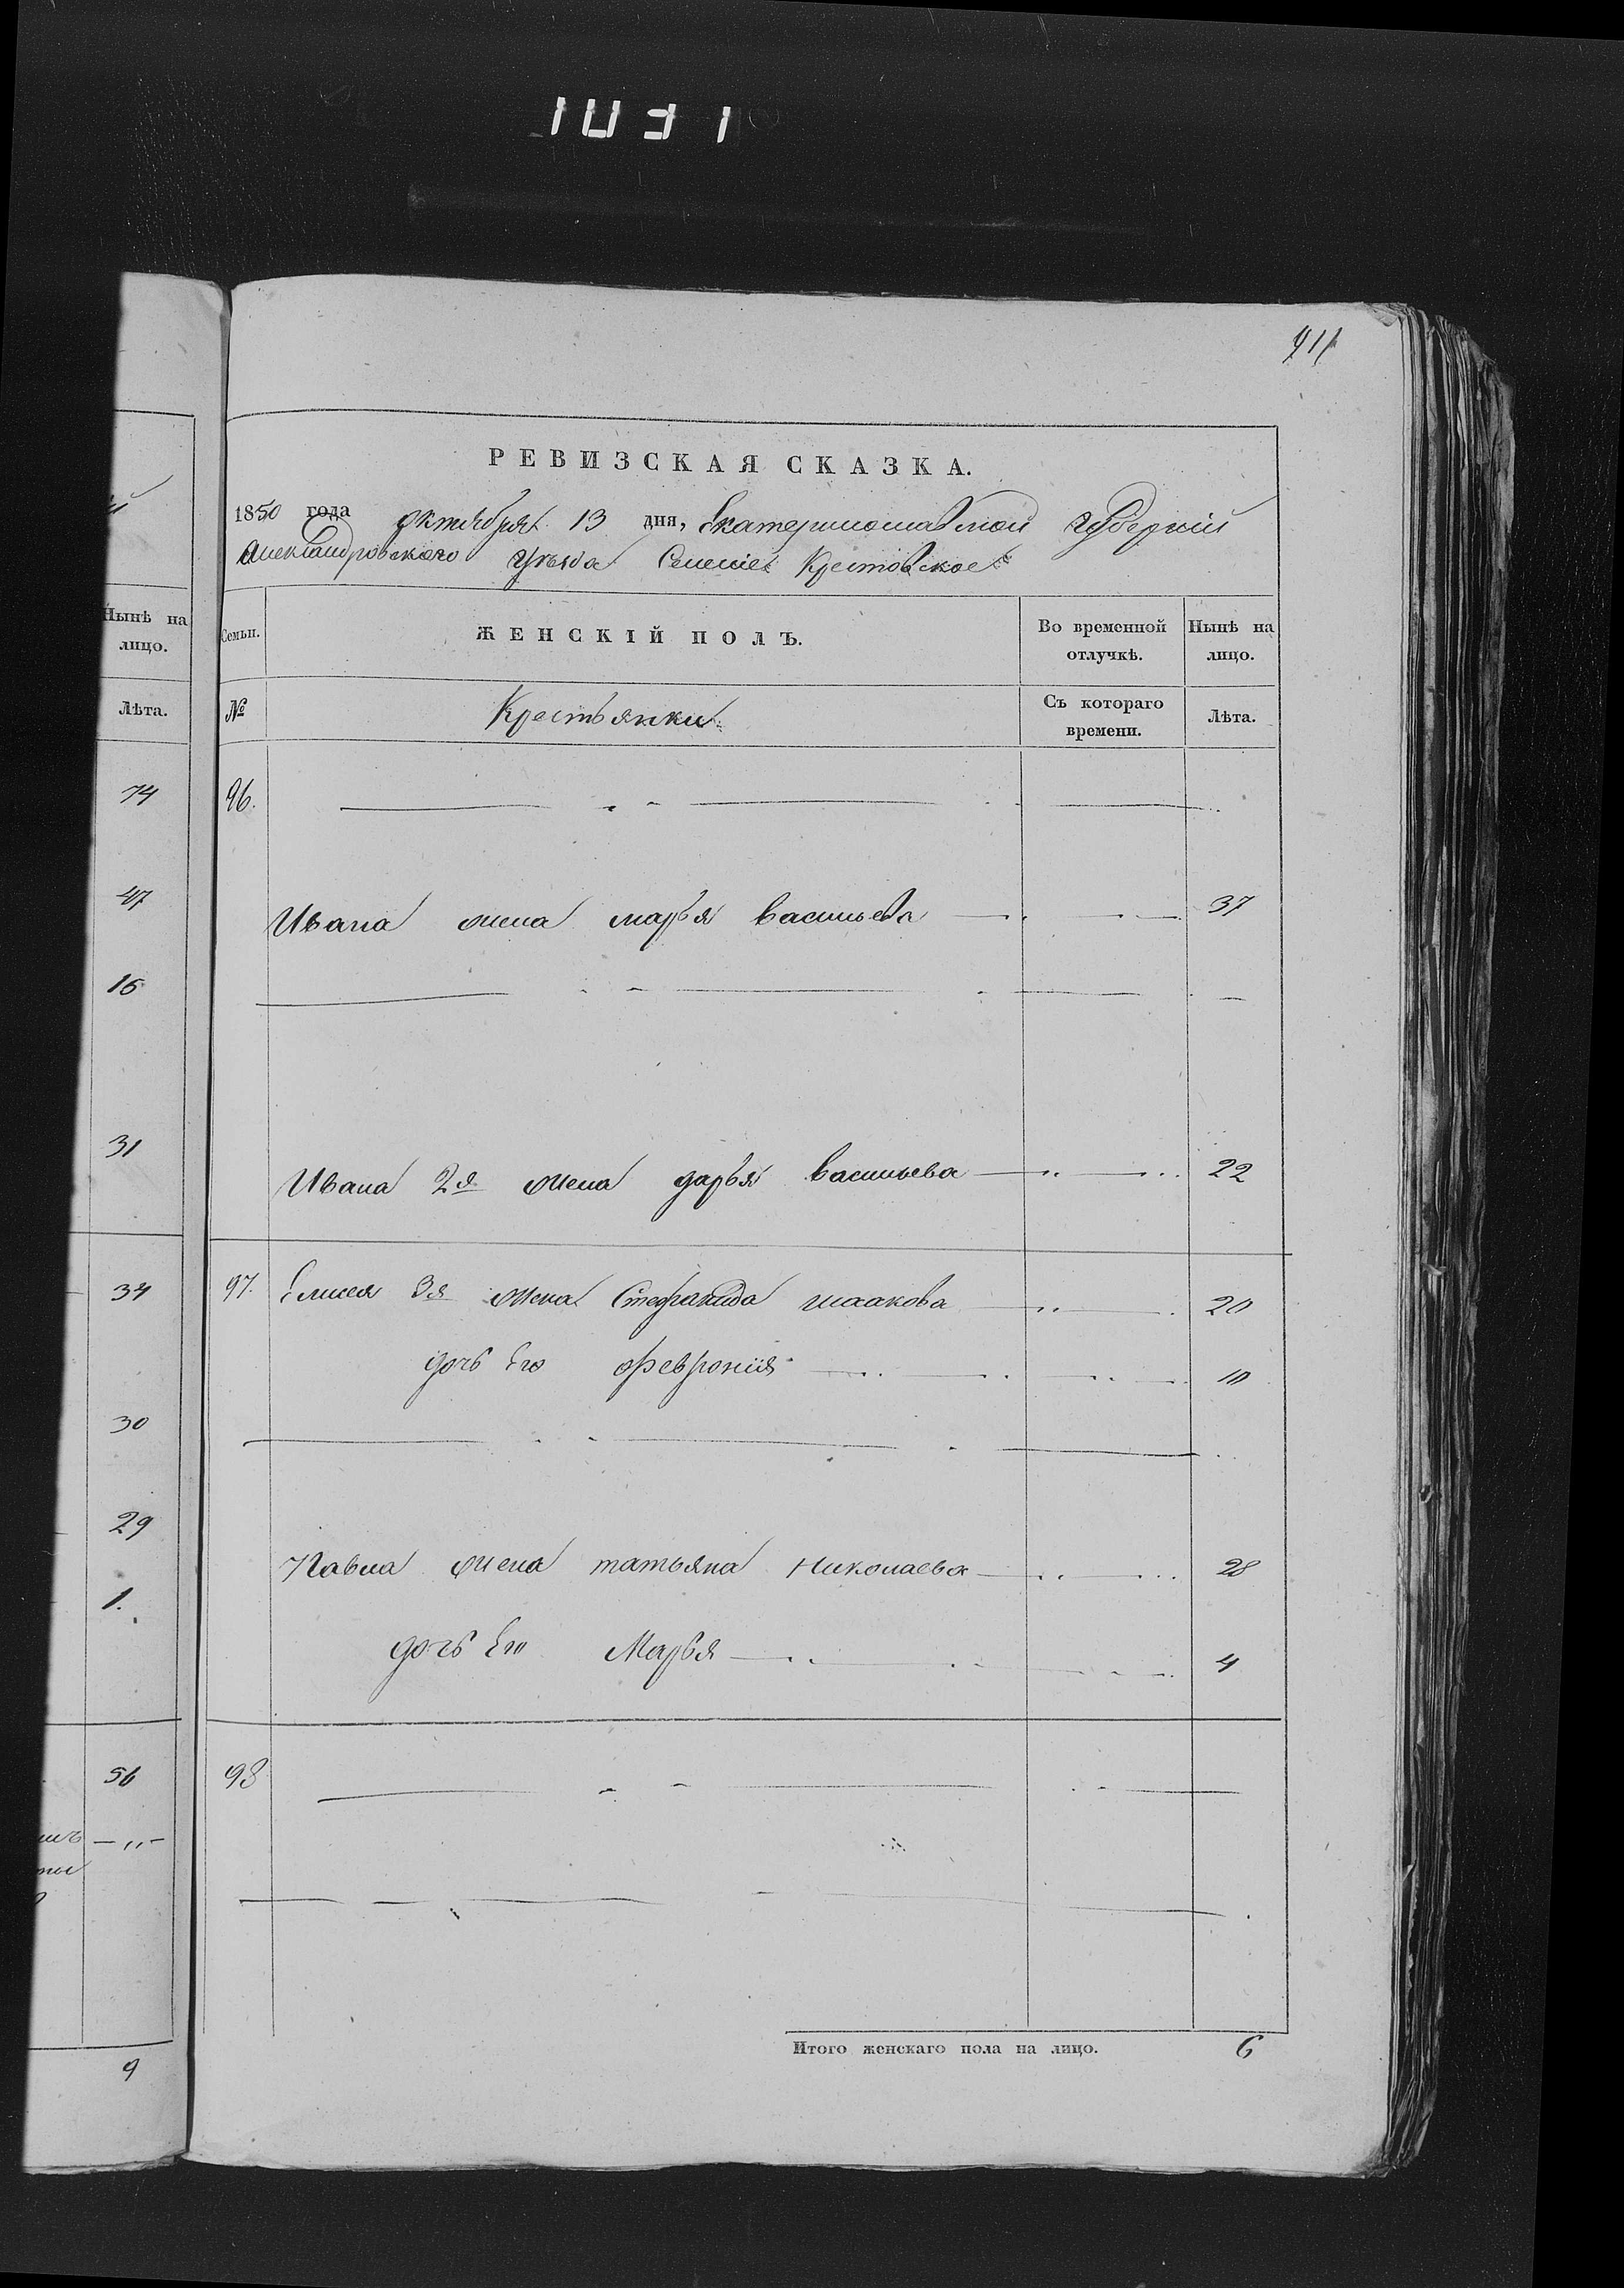 1031
911
й
РЕВИЗСКАЯ СКАЗКА.
1850 года октября 13 дня, Екатеринославской губернии
Александровского уезда Селение Крестовское
Нынѣ на лицо.
Семьи.
ЖЕНСКІЙ ПОЛЪ.
Во временной отлучкѣ.
Нынѣ на лицо.
Лѣта.
№
Крестьянки
Съ котораго времени.
Лѣта.
74
96.
47
Ивана жена марья васильева 37
16
31
Ивана 2я жена дарья васильева 22
34
97. Елисея 3я жена Стефанида исаакова 20
дочь Его феврония 10
30
29
Павла жена татьяна николаева 28
1.
дочь Его Марья 4
56
98
9
Итого женскаго пола на лицо. 6